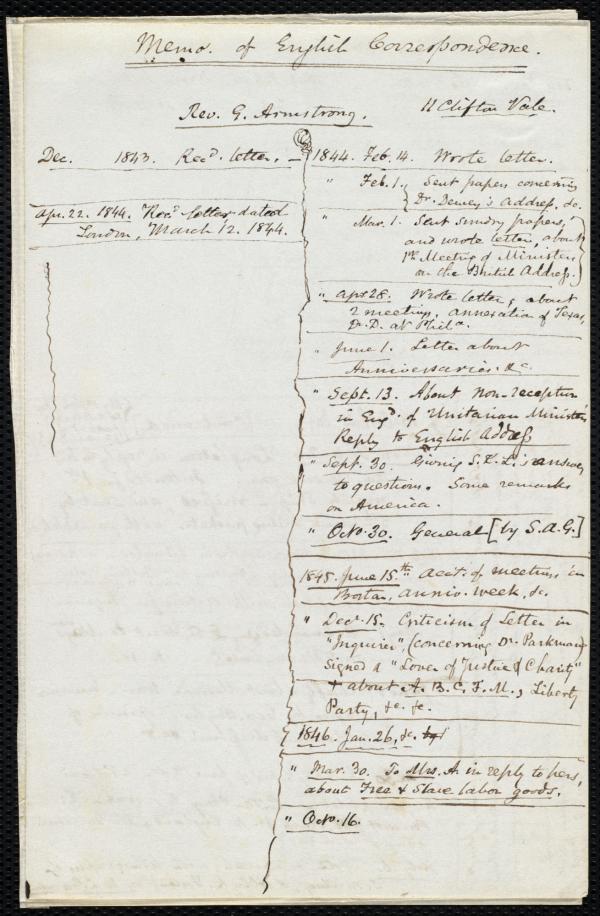 Memo. of English Correspondence.
Rev. G. Armstrong.
11 Clifton Vale.
Dec. 1843. Recd. letter. —
Apr. 22. 1844. Recd letter dated
London, March 12. 1844.
1844. Feb. 14. Wrote letter.
" Feb. 1. Sent papers concerning
Dr. Dewey's Address, &c.
" Mar. 1. Sent sundry papers,
and wrote letter, about
1st Meeting of Ministers
on the British Address.
" Apr 28. Wrote letter, about
2 meetings, annexation of Texas,
Dr. D. at Phila.
" June 1. Letter about
Anniversaries. &c.
" Sept. 13. About Non-reception
in Engd. of Unitarian Ministers
Reply to English Address
" Sept. 30. Giving answer
to questions. Some remarks
on America.
" Oct. 30. General [by S.A.G.]
1845. June 15th. Acct. of meetings in
Boston, anniv. week, &c.
" Dec. 15. Criticism of Letter in
"Inquirer", (concerning Dr. Parkman
signed a "Lover of Justice & Charity"
+ about A. B. C. F. M., Liberty
Party, &c. &c.
1846. Jan. 26, &c.
" Mar. 30. To Mrs. A. in reply to hers,
about Free & Slave labor goods.
" Oct. 16.